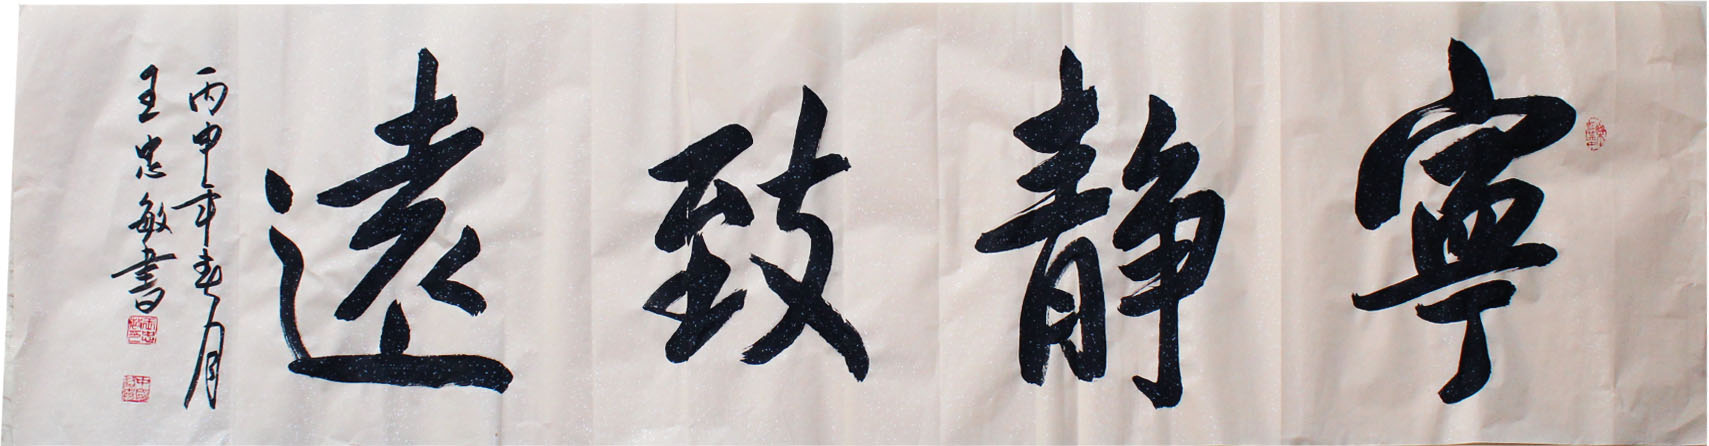 寧靜致遠
丙申年春月
王忠敏書